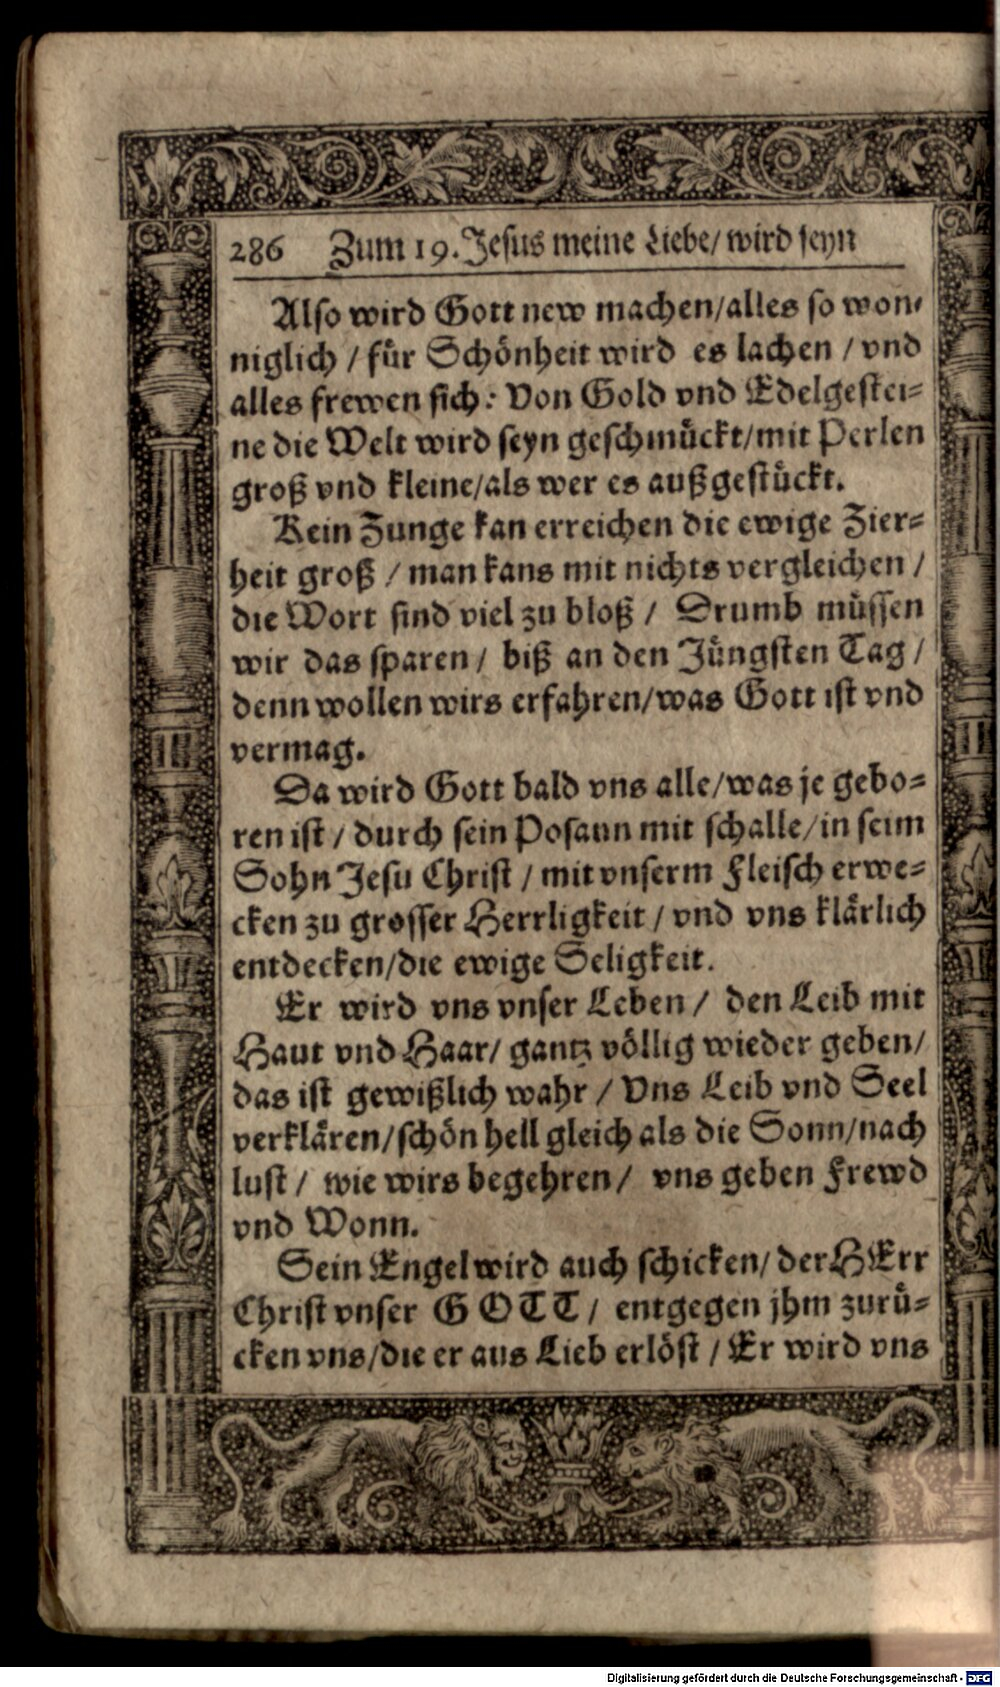 286 Zum 19. Jesus meine Liebe/ wird seyn
Also wird Gott new machen/alles so won-
niglich / für Schönheit wird es lachen / vnd
alles frewen sich: Von Gold vnd Edelgestei-
ne die Welt wird seyn geschmückt/mit Perlen
groß vnd kleine/als wer es außgestückt.
Kein Zunge kan erreichen die ewige Zier-
heit groß / man kans mit nichts vergleichen /
die Wort sind viel zu bloß / Drumb müssen
wir das sparen / biß an den Jüngsten Tag /
denn wollen wirs erfahren/was Gott ist vnd
vermag.
Da wird Gott bald vns alle/was je gebo-
ren ist / durch sein Posaun mit schalle/in seim
Sohn Jesu Christ / mit vnserm Fleisch erwe-
cken zu grosser Herrligkeit / vnd vns klärlich
entdecken/die ewige Seligkeit.
Er wird vns vnser Leben / den Leib mit
Haut vnd Haar/ gantz völlig wieder geben/
das ist gewißlich wahr / Vns Leib vnd Seel
verklären/schön hell gleich als die Sonn/nach
lust / wie wirs begehren / vns geben Frewd
vnd Wonn.
Sein Engel wird auch schicken/ der HErr
Christ vnser GOTT / entgegen jhm zurü-
cken vns/die er aus Lieb erlöst / Er wird vns
Digitalisierung gefördert durch die Deutsche Forschungsgemeinschaft - DFG